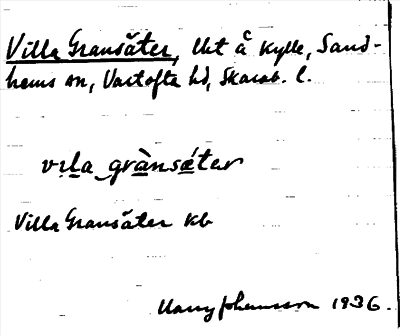 Villa Gransäter, lht å Kylle, Sand-
hems sn, Vartofta hd, Skarab. l.
vıla grànsätər
Villa Gransäter kb
Harry Johansson 1936.